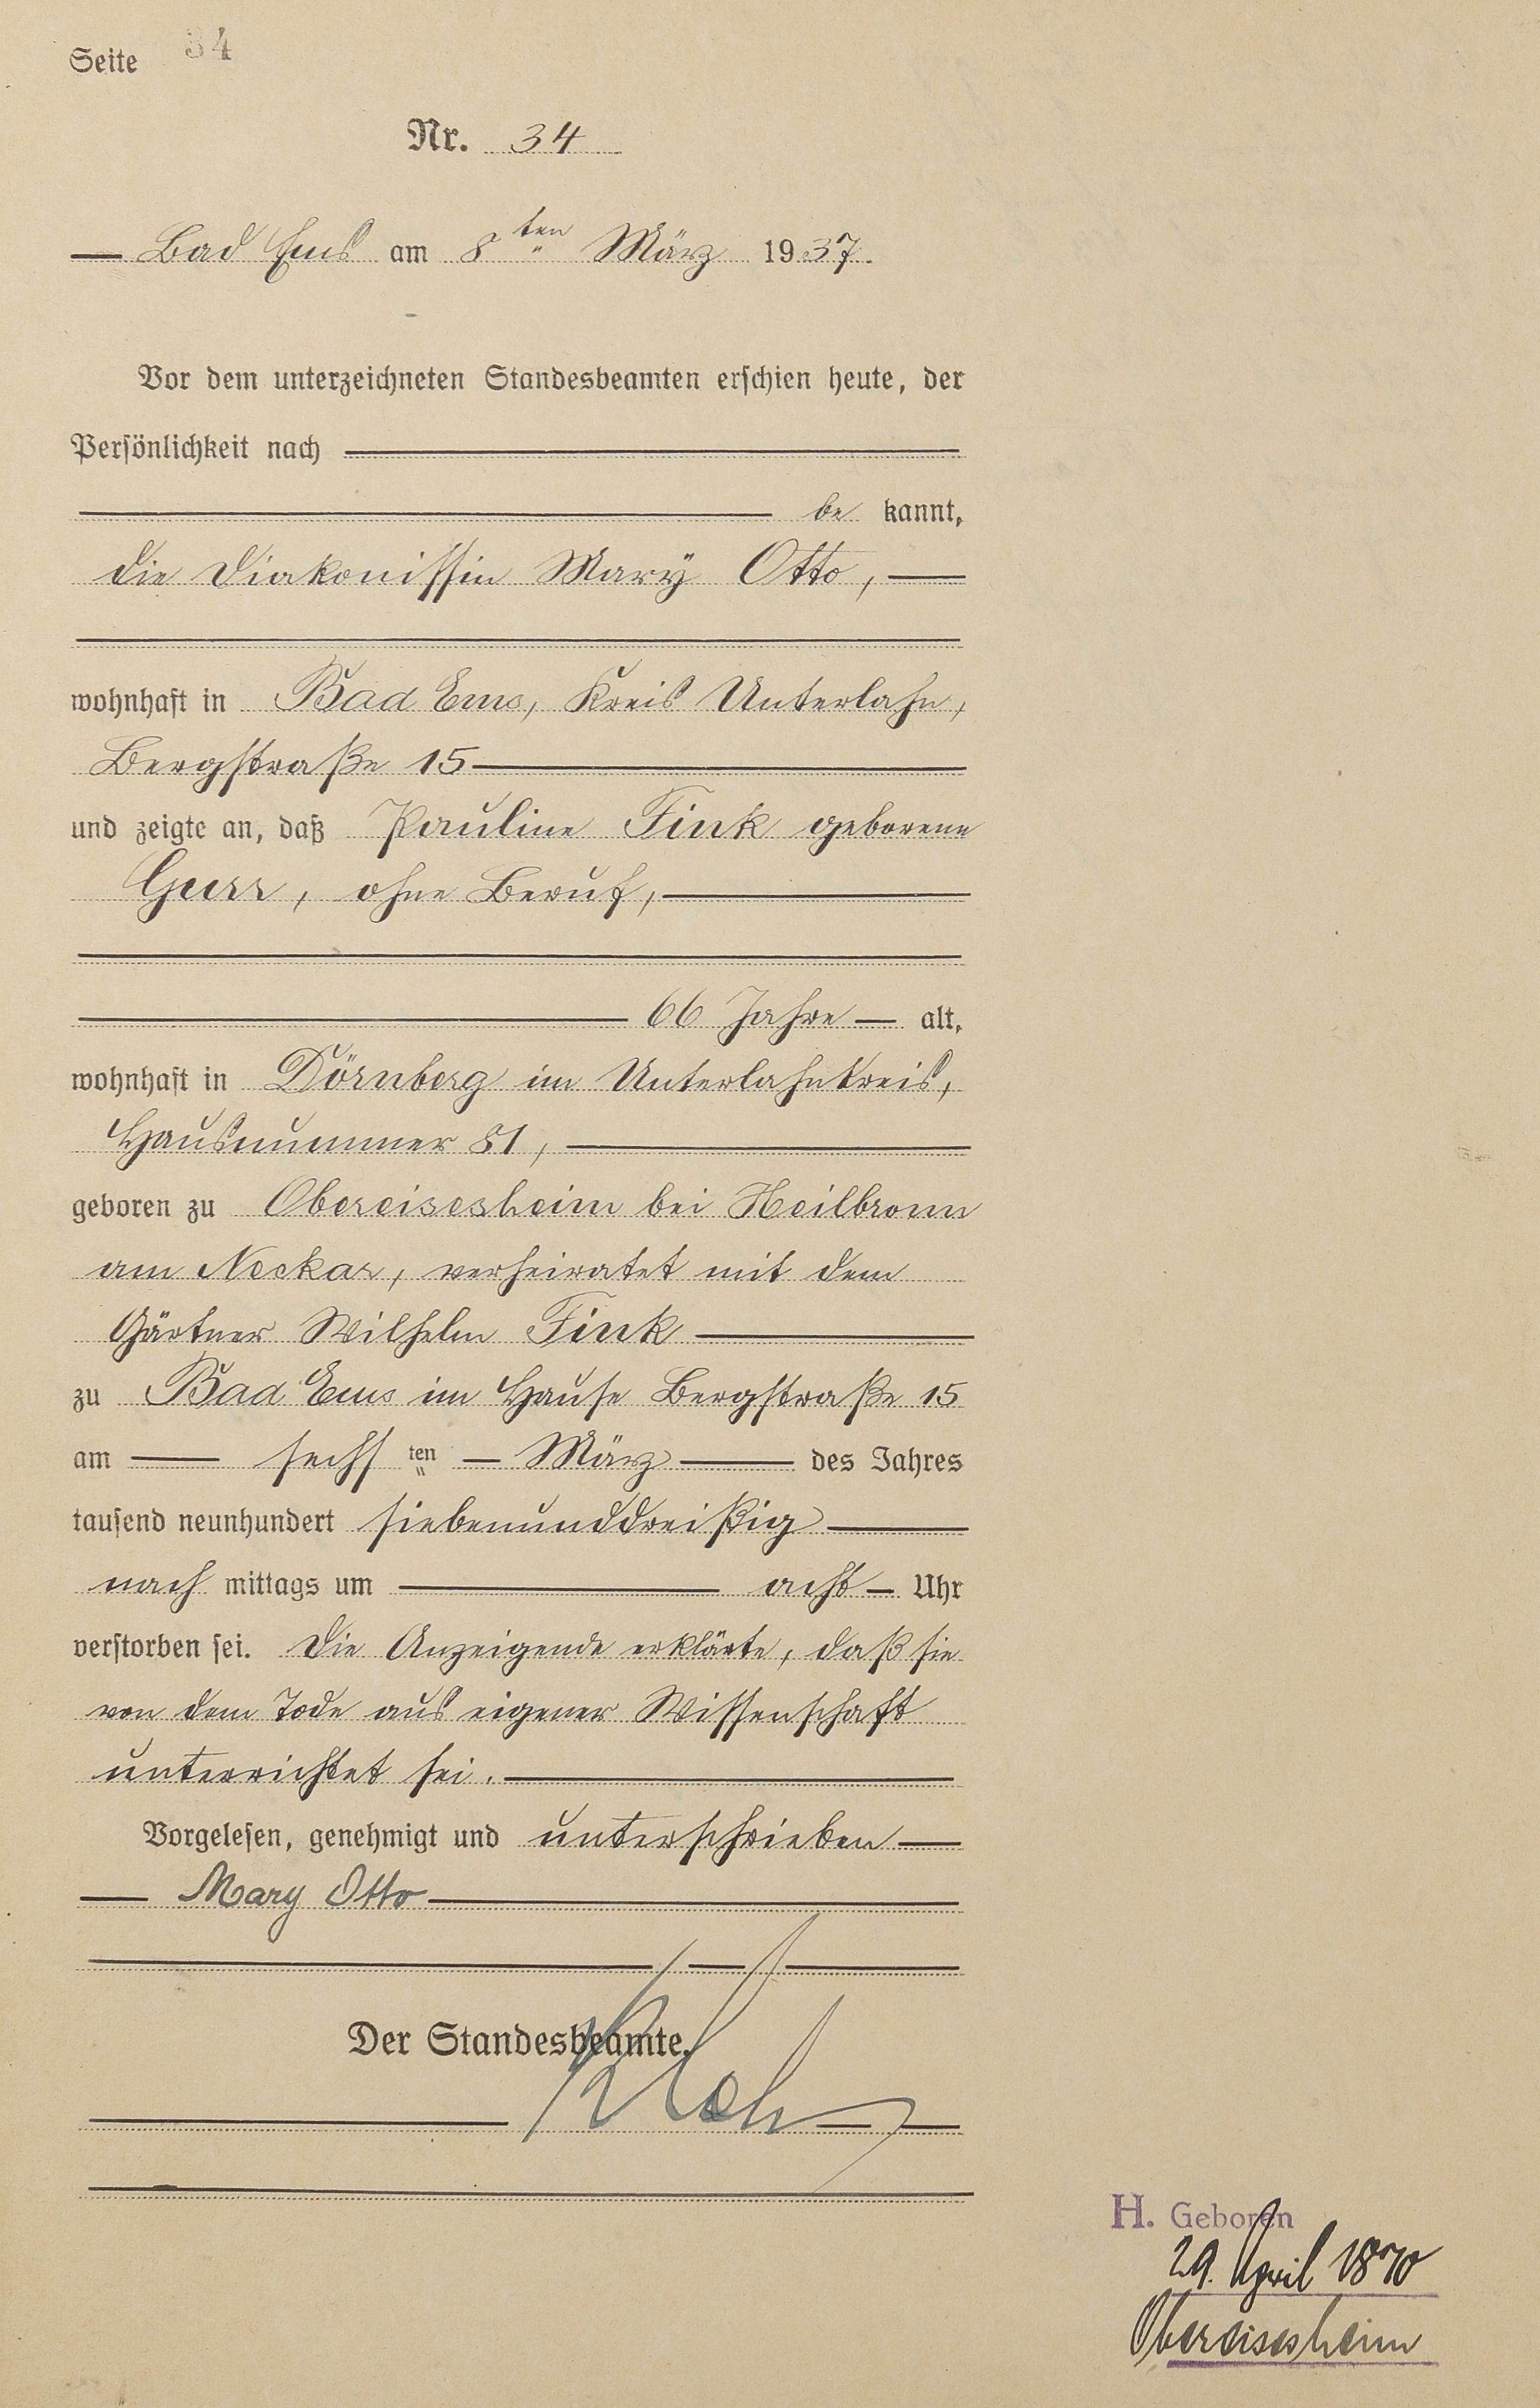 Seite 34
Nr. 34
Bad Ems am 8ten März 1937.
Vor dem unterzeichneten Standesbeamten erschien heute, der
Persönlichkeit nach
be kannt,
die Diakonissin Mary Otto,
wohnhaft in Bad Ems, Kreis Unterlahn,
Bergstraße 15
und zeigte an, daß Pauline Fink geborene
Gurr, ohne Beruf,
66 Jahre alt,
wohnhaft in Dörnberg im Unterlahnkreis,
Hausnummer 81,
geboren zu Obereisesheim bei Heilbronn
am Neckar, verheiratet mit dem
Gärtner Wilhelm Fink
zu Bad Ems im Hause Bergstraße 15
am sechsten März des Jahres
tausend neunhundert siebenunddreißig
nach mittags um acht Uhr
verstorben sei. Die Anzeigende erklärte, daß sie
von dem Tode aus eigener Wissenschaft
unterrichtet sei.
Vorgelesen, genehmigt und unterschrieben
Mary Otto
Der Standesbeamte.
H. Geboren
29. April 1870
Obereisesheim